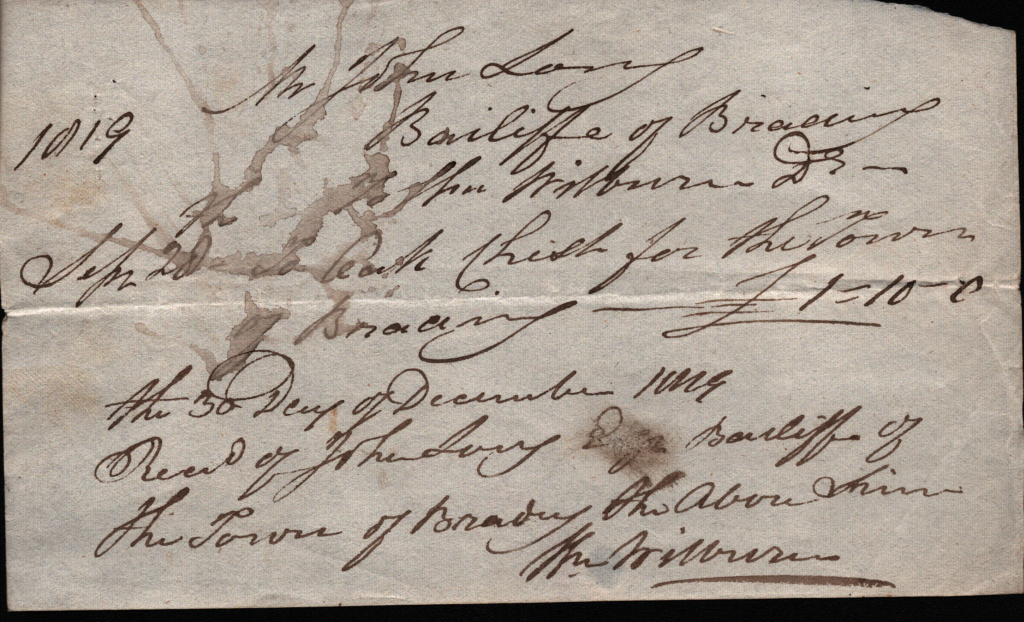 Mr John Long
1819 Bailiffe of Brading
to Wm Wilburn Dr
Sepr 28 To Oak Chist for the Town
of Brading — £1-10-0
the 30 Day of December 1819
Recd of John Long Esqr Bailiffe of
the Town of Brading the Above Sum
Wm Wilburn